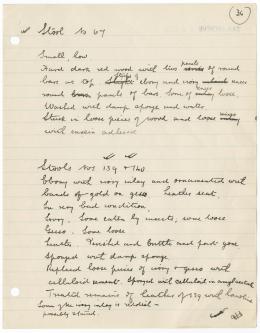 36
Stool No 67
Small, low
Hard dark red wood with ties of round
bars at top. Strips of ebony and ivory
round panels of bars. Some of loose.
Washed with damp sponge and water.
Stuck in loose pieces of wood and loose
with casein adhesive
Stools Nos 139 + 140
Ebony with ivory inlay and ornamented with
bands of gold on gesso. Leather seat.
In very bad condition.
Ivory. Some eaten by insects, some loose
Gesso. Some loose
Leather. Perished and brittle and part gone.
Sponged with damp sponge.
Replaced loose pieces of ivory + gesso with
celluloid cement. Sprayed with celluloid in amyl acetate
Treated remains of leather of 139 with
Some of the ivory inlay is reddish -
possibly stained.